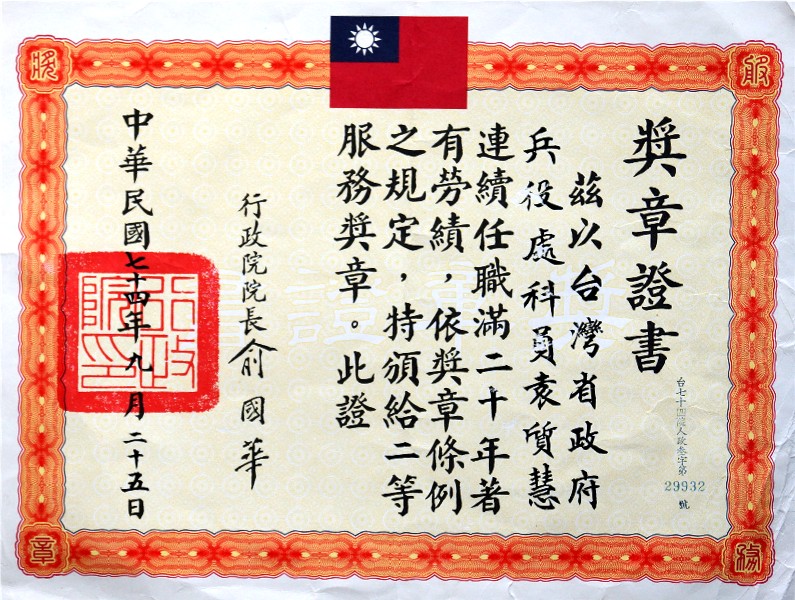 獎章證書
茲以台灣省政府
兵役處科員袁質慧
連續任職滿二十年著
有勞績，依獎章條例
之規定，特頒給二等
服務獎章。此證
行政院院長俞國華
中華民國七十四年九月二十五日
台七十四院人政叁字第
29932
號
獎章證書
行政院印
服
獎
務
章